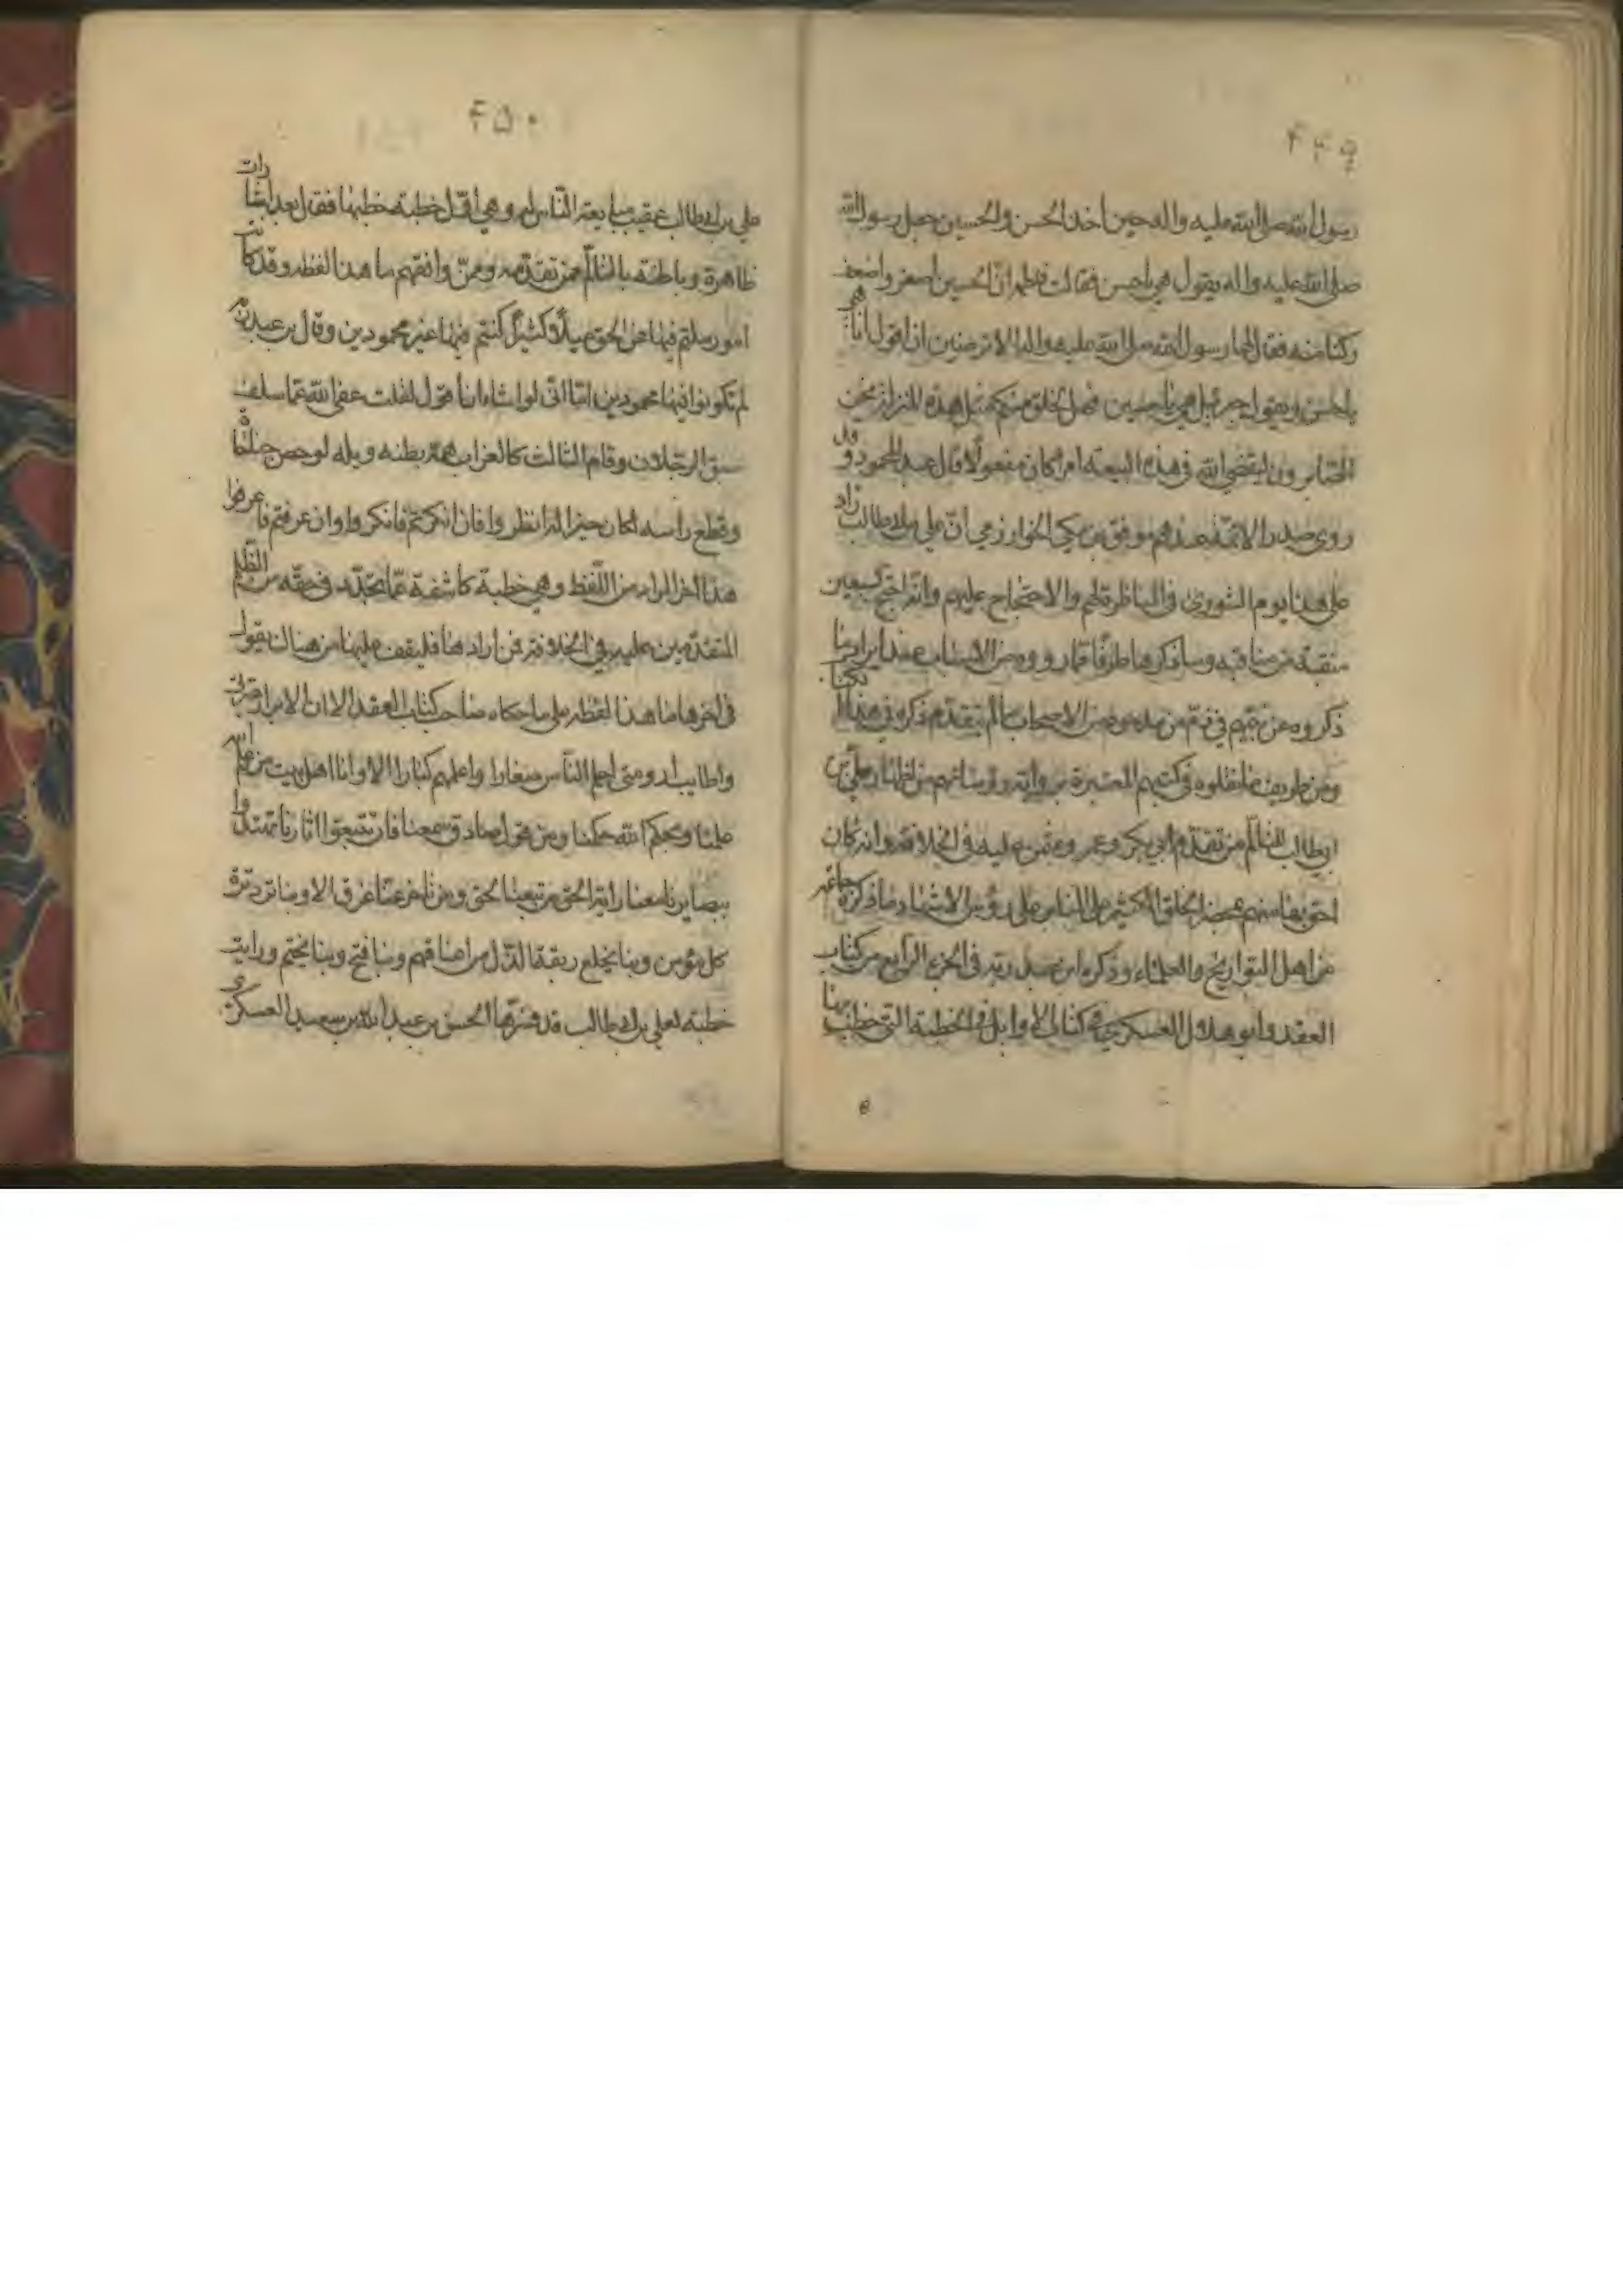 ۴۴۹
رسول الله صلى الله عليه واله حين اخذ الحسن والحسين جعل رسول الله
صلى الله عليه واله يقول هي يا حسن فقالت فاطمة ان الحسين اصغر واضعف
ركنا منه فقال لها رسول الله صلى الله عليه واله الا ترضين ان اقول انا هي
يا حسن ويقول جبرئيل هي يا حسين فهل لخلق منكم مثل هذه المنزلة نحن
الصابرون ليقضي الله في هذه البيعة امرا كان مفعولا قال عبد المحمود وقد
روى صدر الائمة عندهم موفق بن احمد المكي الخوارزمي ان علي بن ابيطالب زاد
على هذا يوم الشورى في المناظرة لهم والاحتجاج عليهم وانه احتج بسبعين
منقبة من مناقبه وساذكرها طرفا مما رووه من الاسباب عند ايراد ما
ذكروه عن نبيهم في ذم من مدحوه من الاصحاب مالم يتقدم ذكره في هذا الكتاب
ومن طريف ما نقلوه في كتبهم المعتبرة برواية رؤسائهم من اظهار علي بن
ابيطالب التالم من تقدم ابي بكر وعمر وعثمن عليه في الخلافة وانه كان
احق بها منهم بمحضر الخلق الكثير على المنابر على رؤس الاشهاد ما ذكره جماعة
من اهل التواريخ والعلماء وذكره ابن عبد ربه في الجزء الرابع من كتاب
العقد وابو هلال العسكري في كتاب الاوايل في الخطبة التي خطب بها
۴۵۰
علي بن ابيطالب عقيب مبايعة الناس له وهي اول خطبة خطبها فقال بعد اشارات
ظاهرة وباطنة بالتالم ممن تقدمه وممن وافقهم ما هذا لفظه وقد كانت
امور ملتم فيها عن الحق ميلا كثيرا كنتم فيها غير محمودين وقال بن عبد ربه
لم تكونوا فيها محمودين اما اني لو اشاء ان اقول لقلت عفى الله عما سلف
سبق الرجلان وقام الثالث كالغراب همته بطنه ويله لو قص جناحاه
وقطع راسه لكان خيرا له انظروا فان انكرتم فانكروا وان عرفتم فاعرفوا
هذا اخر المراد من اللفظ وهي خطبة كاشفة عما تجدد في حقه من الظلم
المتقدمين عليه في الخلافة فمن ارادها فليقف عليها من هناك يقول
في اخرها ما هذا لفظه على ما حكاه صاحب كتاب العقد الا ان الابرار عترتي
واطايب ارومتي احلم الناس صغارا واعلمهم كبارا الا وانا اهل بيت من علم الله
علمنا وبحكم الله حكمنا ومن قول صادق سمعنا فان تتبعوا اثارنا تهتدوا
ببصايرنا معنا راية الحق من تبعها لحق ومن تاخر عنا غرق الا وبنا ترد ترة
كل مؤمن وبنا يخلع ربقة الذل من اعناقهم وبنا فتح وبنا يختم ورايت
خطبة لعلي بن ابيطالب قد فسرها الحسن بن عبد الله بن سعيد العسكري